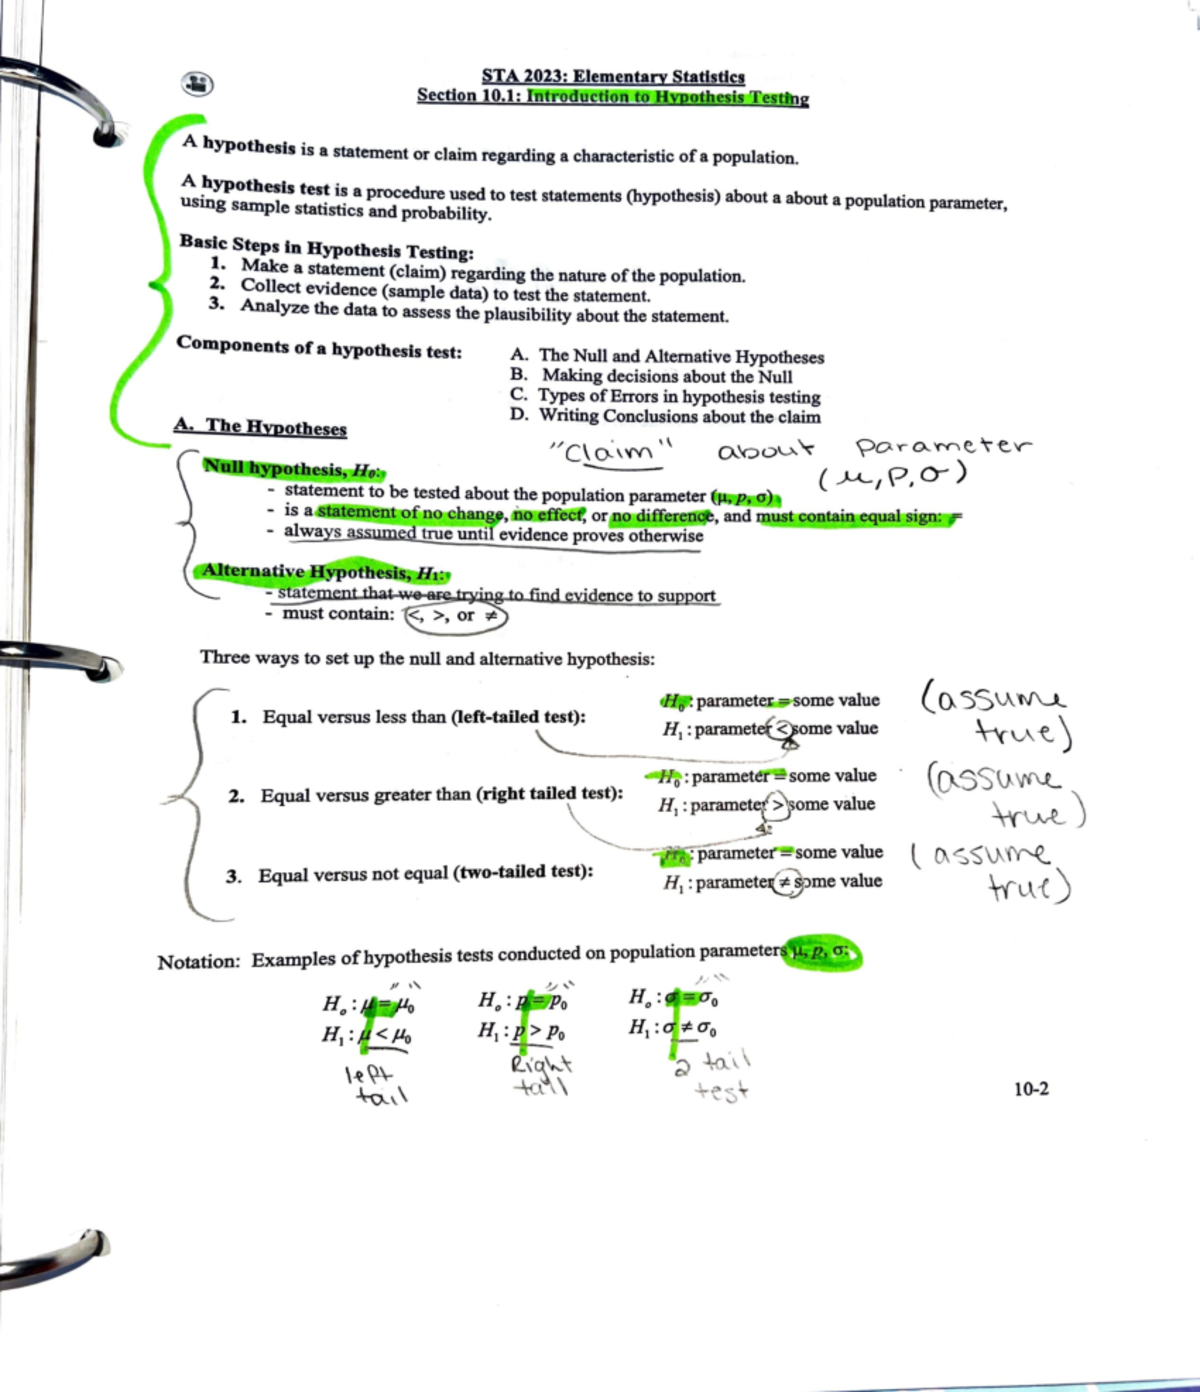 STA 2023: Elementary Statistics
Section 10.1: Introduction to Hypothesis Testing
A hypothesis is a statement or claim regarding a characteristic of a population.
A hypothesis test is a procedure used to test statements (hypothesis) about a about a population parameter,
using sample statistics and probability.
Basic Steps in Hypothesis Testing:
1. Make a statement (claim) regarding the nature of the population.
2. Collect evidence (sample data) to test the statement.
3. Analyze the data to assess the plausibility about the statement.
Components of a hypothesis test: A. The Null and Alternative Hypotheses
B. Making decisions about the Null
C. Types of Errors in hypothesis testing
D. Writing Conclusions about the claim
A. The Hypotheses
"Claim" about parameter
(μ, p, σ)
Null hypothesis, H₀:
- statement to be tested about the population parameter (μ, p, σ)
- is a statement of no change, no effect, or no difference, and must contain equal sign: =
- always assumed true until evidence proves otherwise
Alternative Hypothesis, H₁:
- statement that we are trying to find evidence to support
- must contain: <, >, or ≠
Three ways to set up the null and alternative hypothesis:
1. Equal versus less than (left-tailed test): H₀ : parameter = some value (assume
H₁ : parameter < some value true)
2. Equal versus greater than (right tailed test): H₀ : parameter = some value (assume
H₁ : parameter > some value true)
3. Equal versus not equal (two-tailed test): H₀ : parameter = some value (assume
H₁ : parameter ≠ some value true)
Notation: Examples of hypothesis tests conducted on population parameters μ, p, σ:
Hₒ : μ = μ₀ Hₒ : p = p₀ Hₒ : σ = σ₀
H₁ : μ < μ₀ H₁ : p > p₀ H₁ : σ ≠ σ₀
left Right 2 tail
tail tail test
10-2